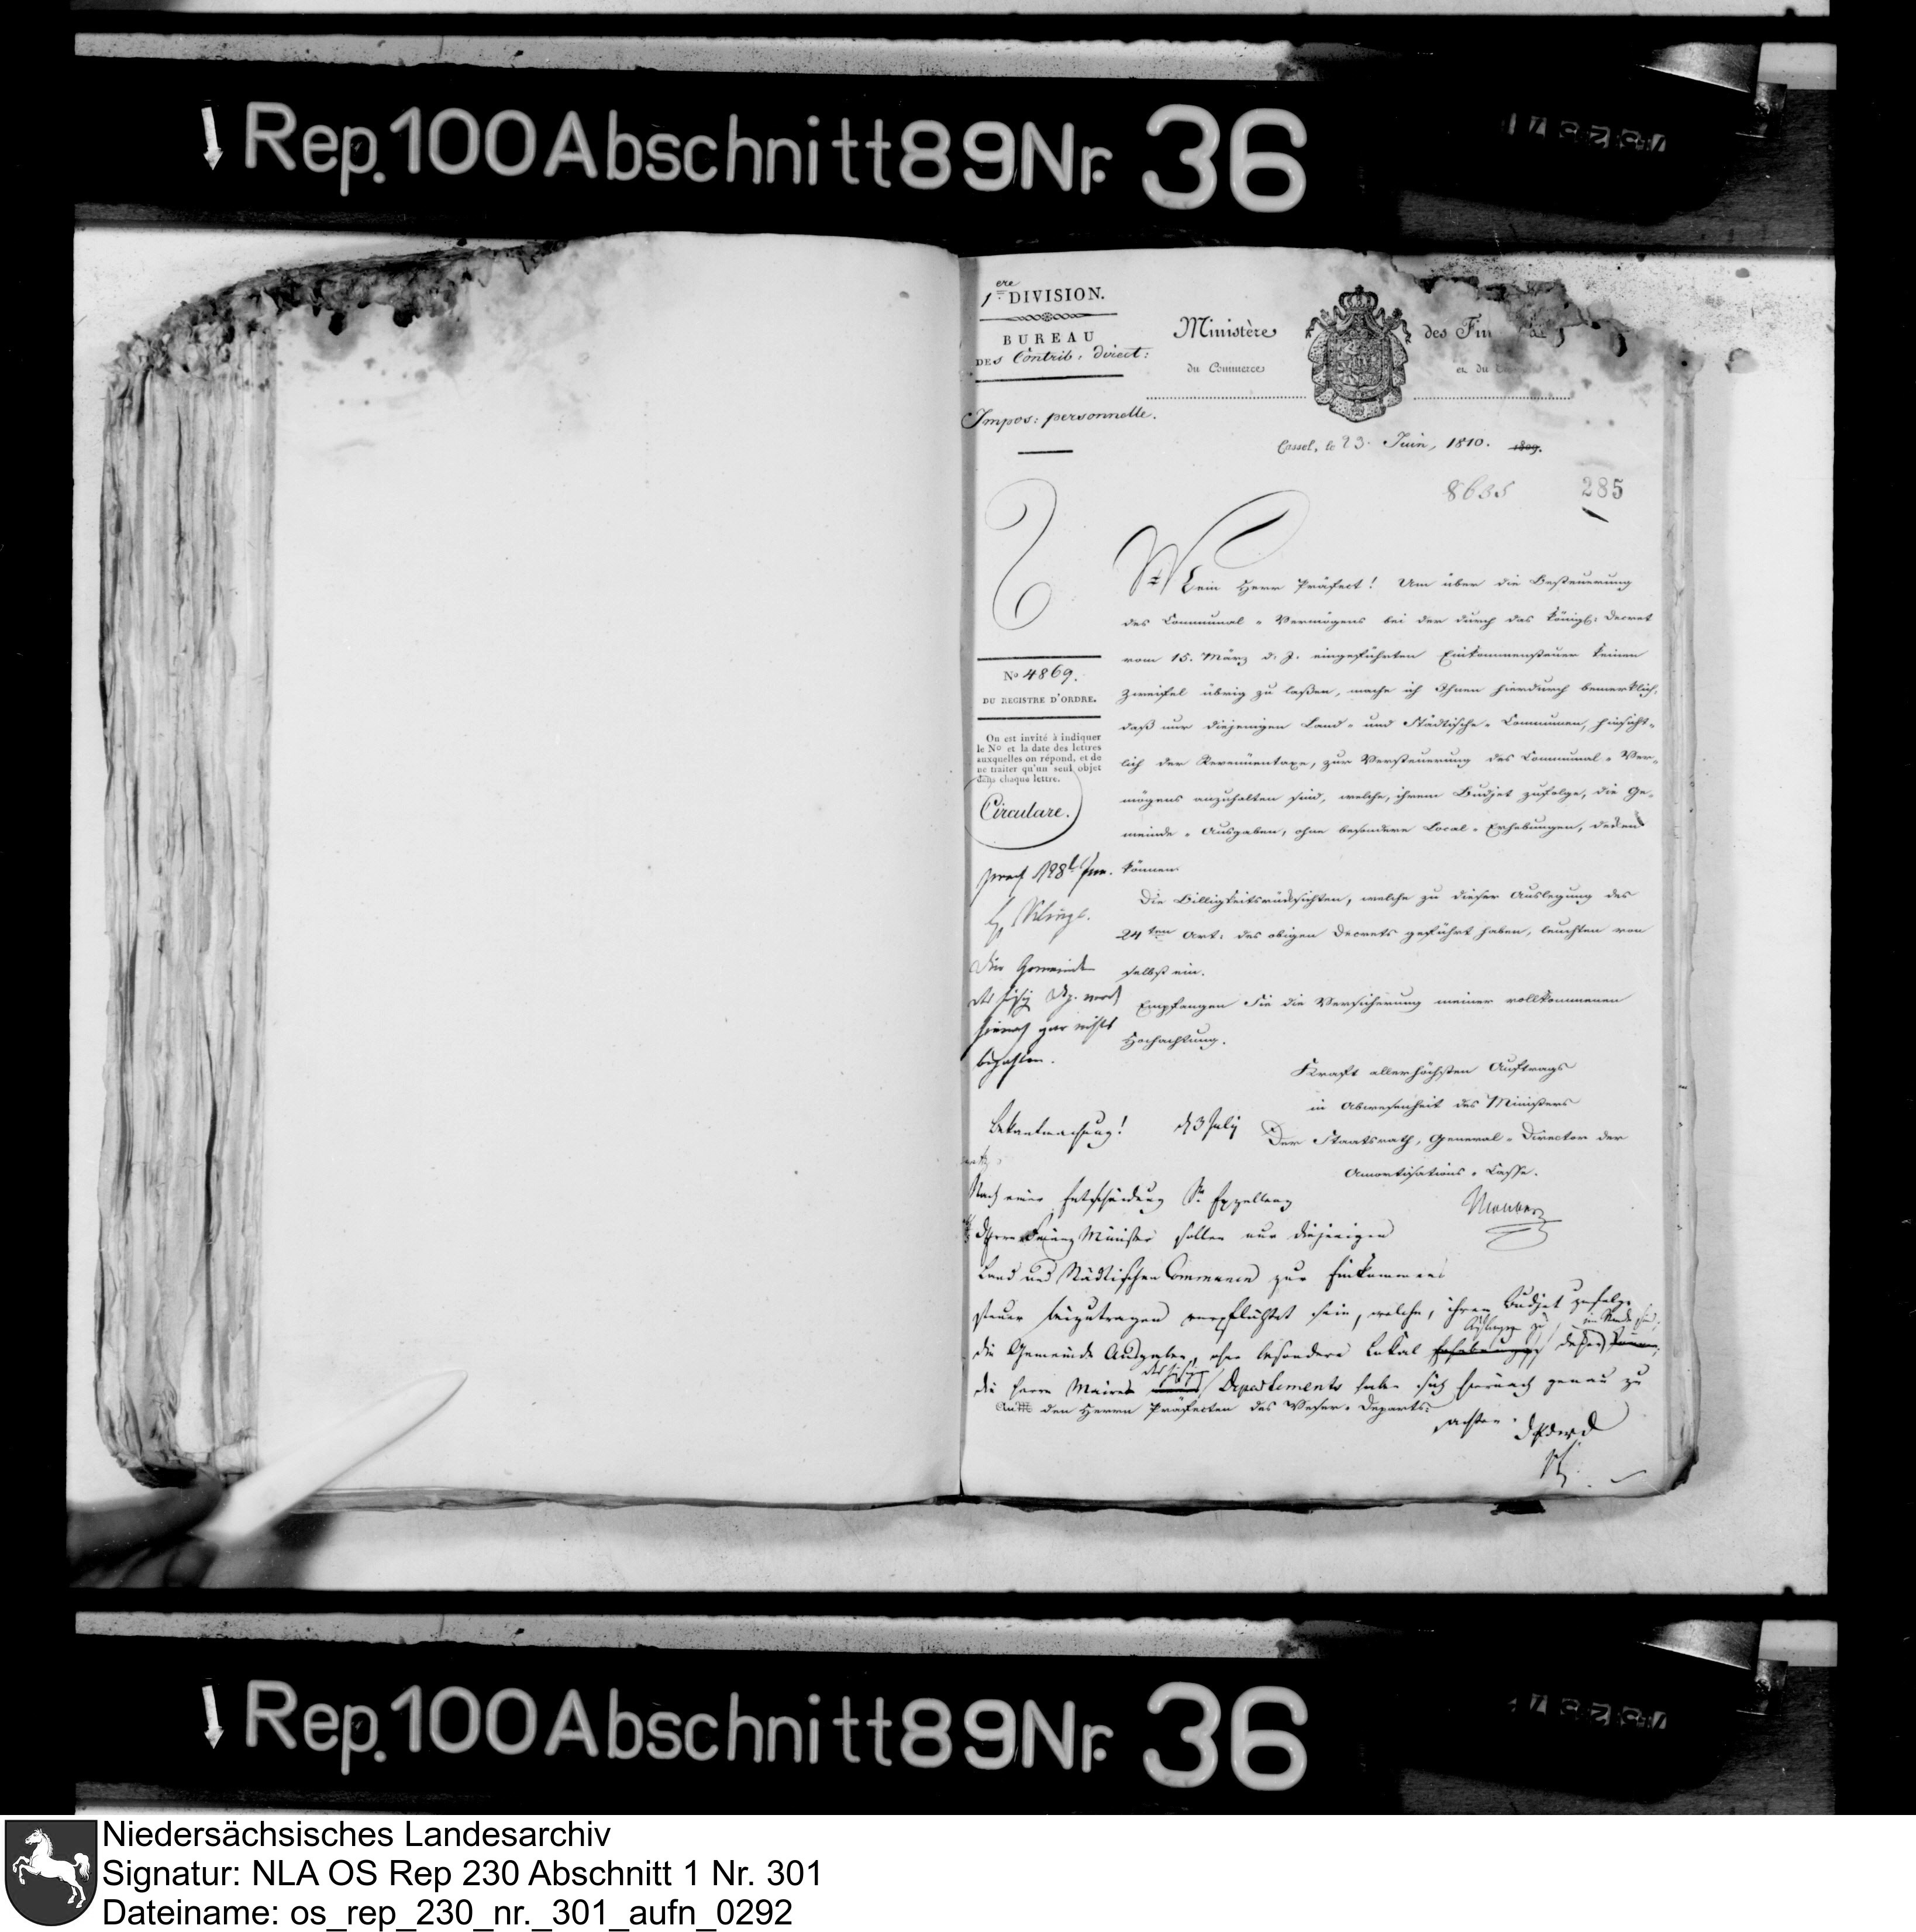 Rep.100Abschnitt89Nr. 36
1ere DIVISION.
BUREAU
DES Contrib: direct:
Impos: personnelle.
Ministère des Fin
du Commerce et du
Cassel, le 23. Juin, 1810. 1809.
8635
285
Mein Herr Präfect! Um über die Besteuerung
des Communal-Vermögens bei der durch das königl: Decret
vom 15. März d. J. eingeführten Einkommensteuer keinen
Zweifel übrig zu laßen, mache ich Ihnen hierdurch bemerklich,
daß nur diejenigen Land- und Städtische-Communen, hinsicht-
lich der Revenüentaxe, zur Versteuerung des Communal-Ver-
mögens anzuhalten sind, welche, ihrem Budjet zufolge, die Ge-
meinde-Ausgaben, ohne besondere Local-Erhebungen, decken
können
Die Billigkeitsrücksichten, welche zu dieser Auslegung des
24ten Art: des obigen Decrets geführt haben, leuchten von
selbst ein.
Empfangen Sie die Versicherung meiner vollkommenen
Hochachtung.
Kraft allerhöchsten Auftrags
in Abwesenheit des Ministers
Der Staatsrath, General-Director der
Amortisations-Casse.
An den Herrn Präfecten des Weser-Departs:
No 4869.
DU REGISTRE D'ORDRE.
On est invité à indiquer
le No et la date des lettres
auxquelles on répond, et de
ne traiter qu'un seul objet
dans chaque lettre.
Circulare.
Die Gemeinde
hienach gar nichts
bezahlen.
Bekantmachung! d 3 July
Nach einer Entscheidung Sr. Exzellenz
des Herrn Finanz Minister sollen nur diejenigen
Land und Städtischen Communen zur Einkommens
steuer beizutragen verpflichtet sein, welche, ihrem Budjet zufolge
die Gemeinde Ausgaben, ohne besondere Lokal Erhebungen decken können
die Herrn Maires des hiesigen Departements haben sich hienach genau zu
achten.
Rep.100Abschnitt89Nr. 36
Niedersächsisches Landesarchiv
Signatur: NLA OS Rep 230 Abschnitt 1 Nr. 301
Dateiname: os_rep_230_nr._301_aufn_0292